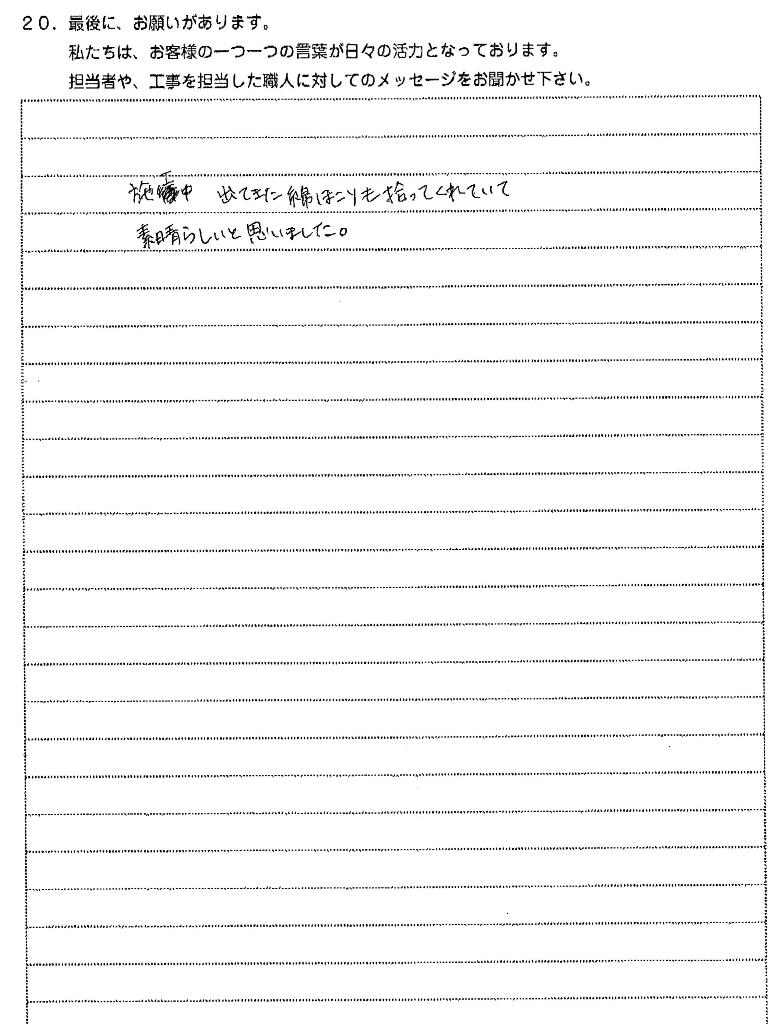 20．最後に、お願いがあります。
私たちは、お客様の一つ一つの言葉が日々の活力となっております。
担当者や、工事を担当した職人に対してのメッセージをお聞かせ下さい。
施工中 出てきた綿ほこりも拾ってくれていて
素晴らしいと思いました。